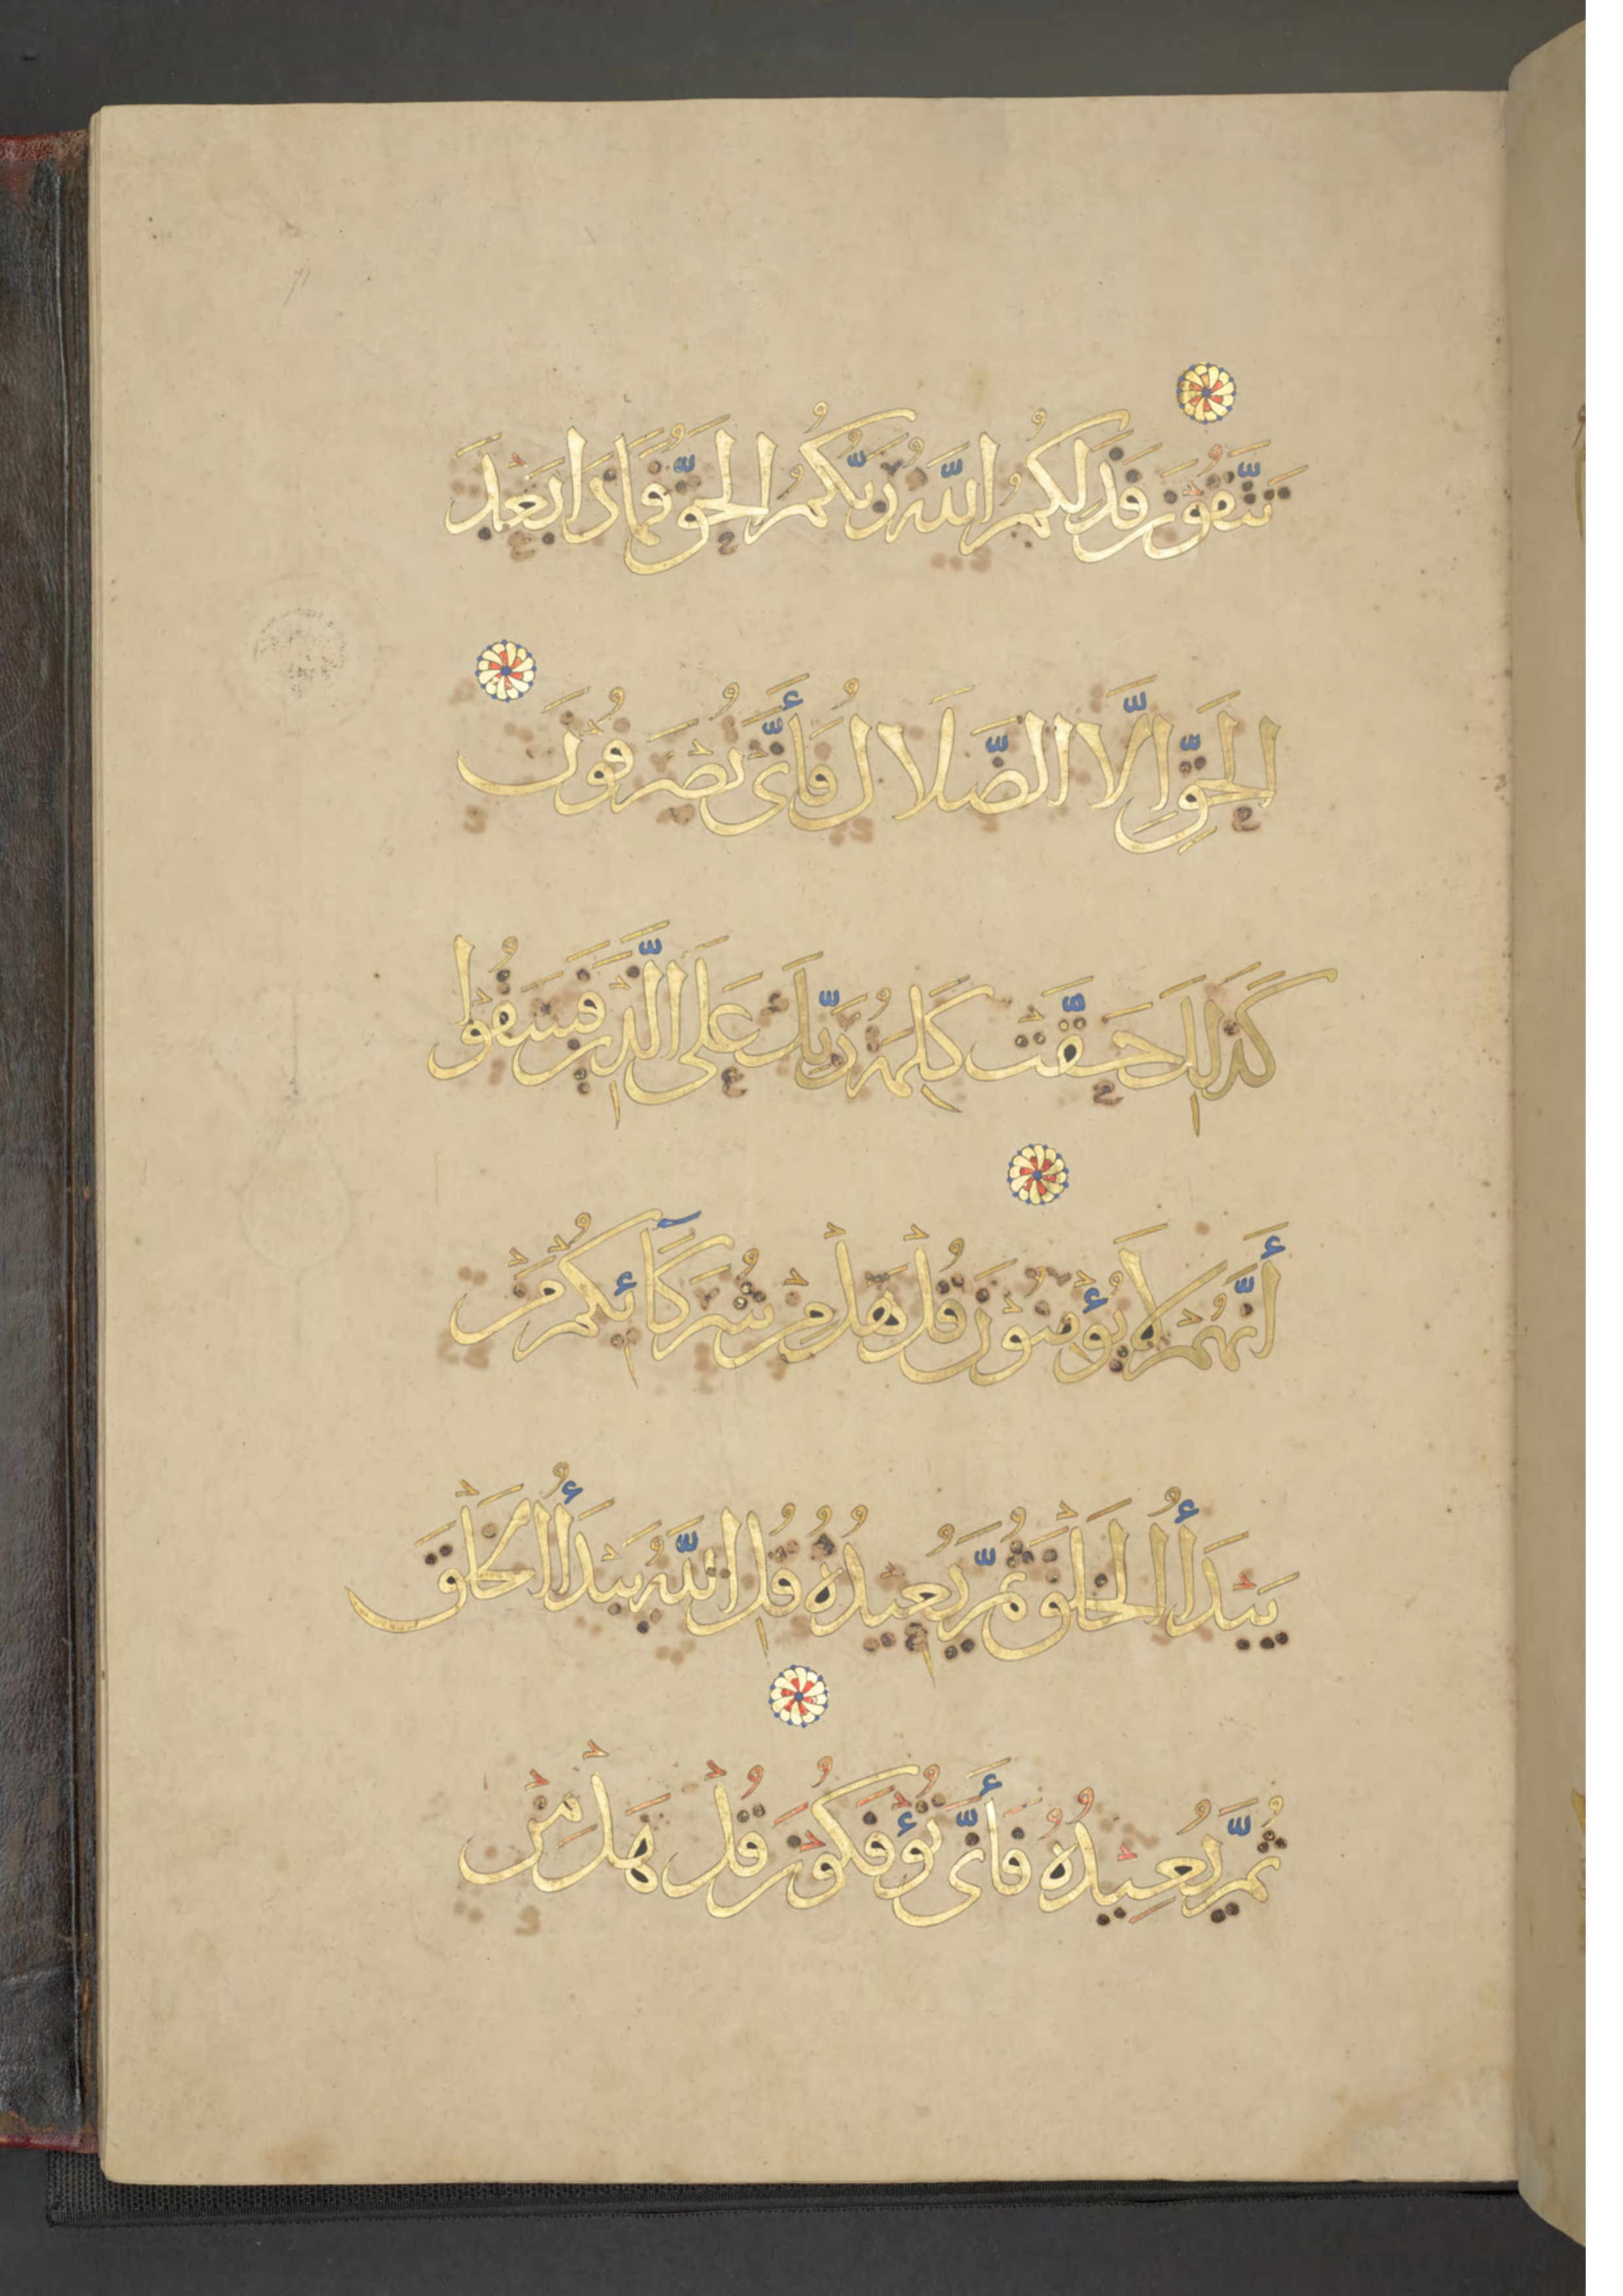 تَتَّقُوْنَ فَذَلِكُمُ اللَّهُ رَبُّكُمُ الْحَقُّ فَمَاذَا بَعْدَ
الْحَقِّ إِلَّا الضَّلَالُ فَأَنَّى تُصْرَفُوْنَ
كَذَلِكَ حَقَّتْ كَلِمَةُ رَبِّكَ عَلَى الَّذِيْنَ فَسَقُوْا
أَنَّهُمْ لَا يُؤْمِنُوْنَ قُلْ هَلْ مِنْ شُرَكَآئِكُمْ مَنْ
يَبْدَأُ الْخَلْقَ ثُمَّ يُعِيدُهُ قُلِ اللَّهُ يَبْدَأُ الْخَلْقَ
ثُمَّ يُعِيْدُهُ فَأَنَّى تُؤْفَكُوْنَ قُلْ هَلْ مِنْ